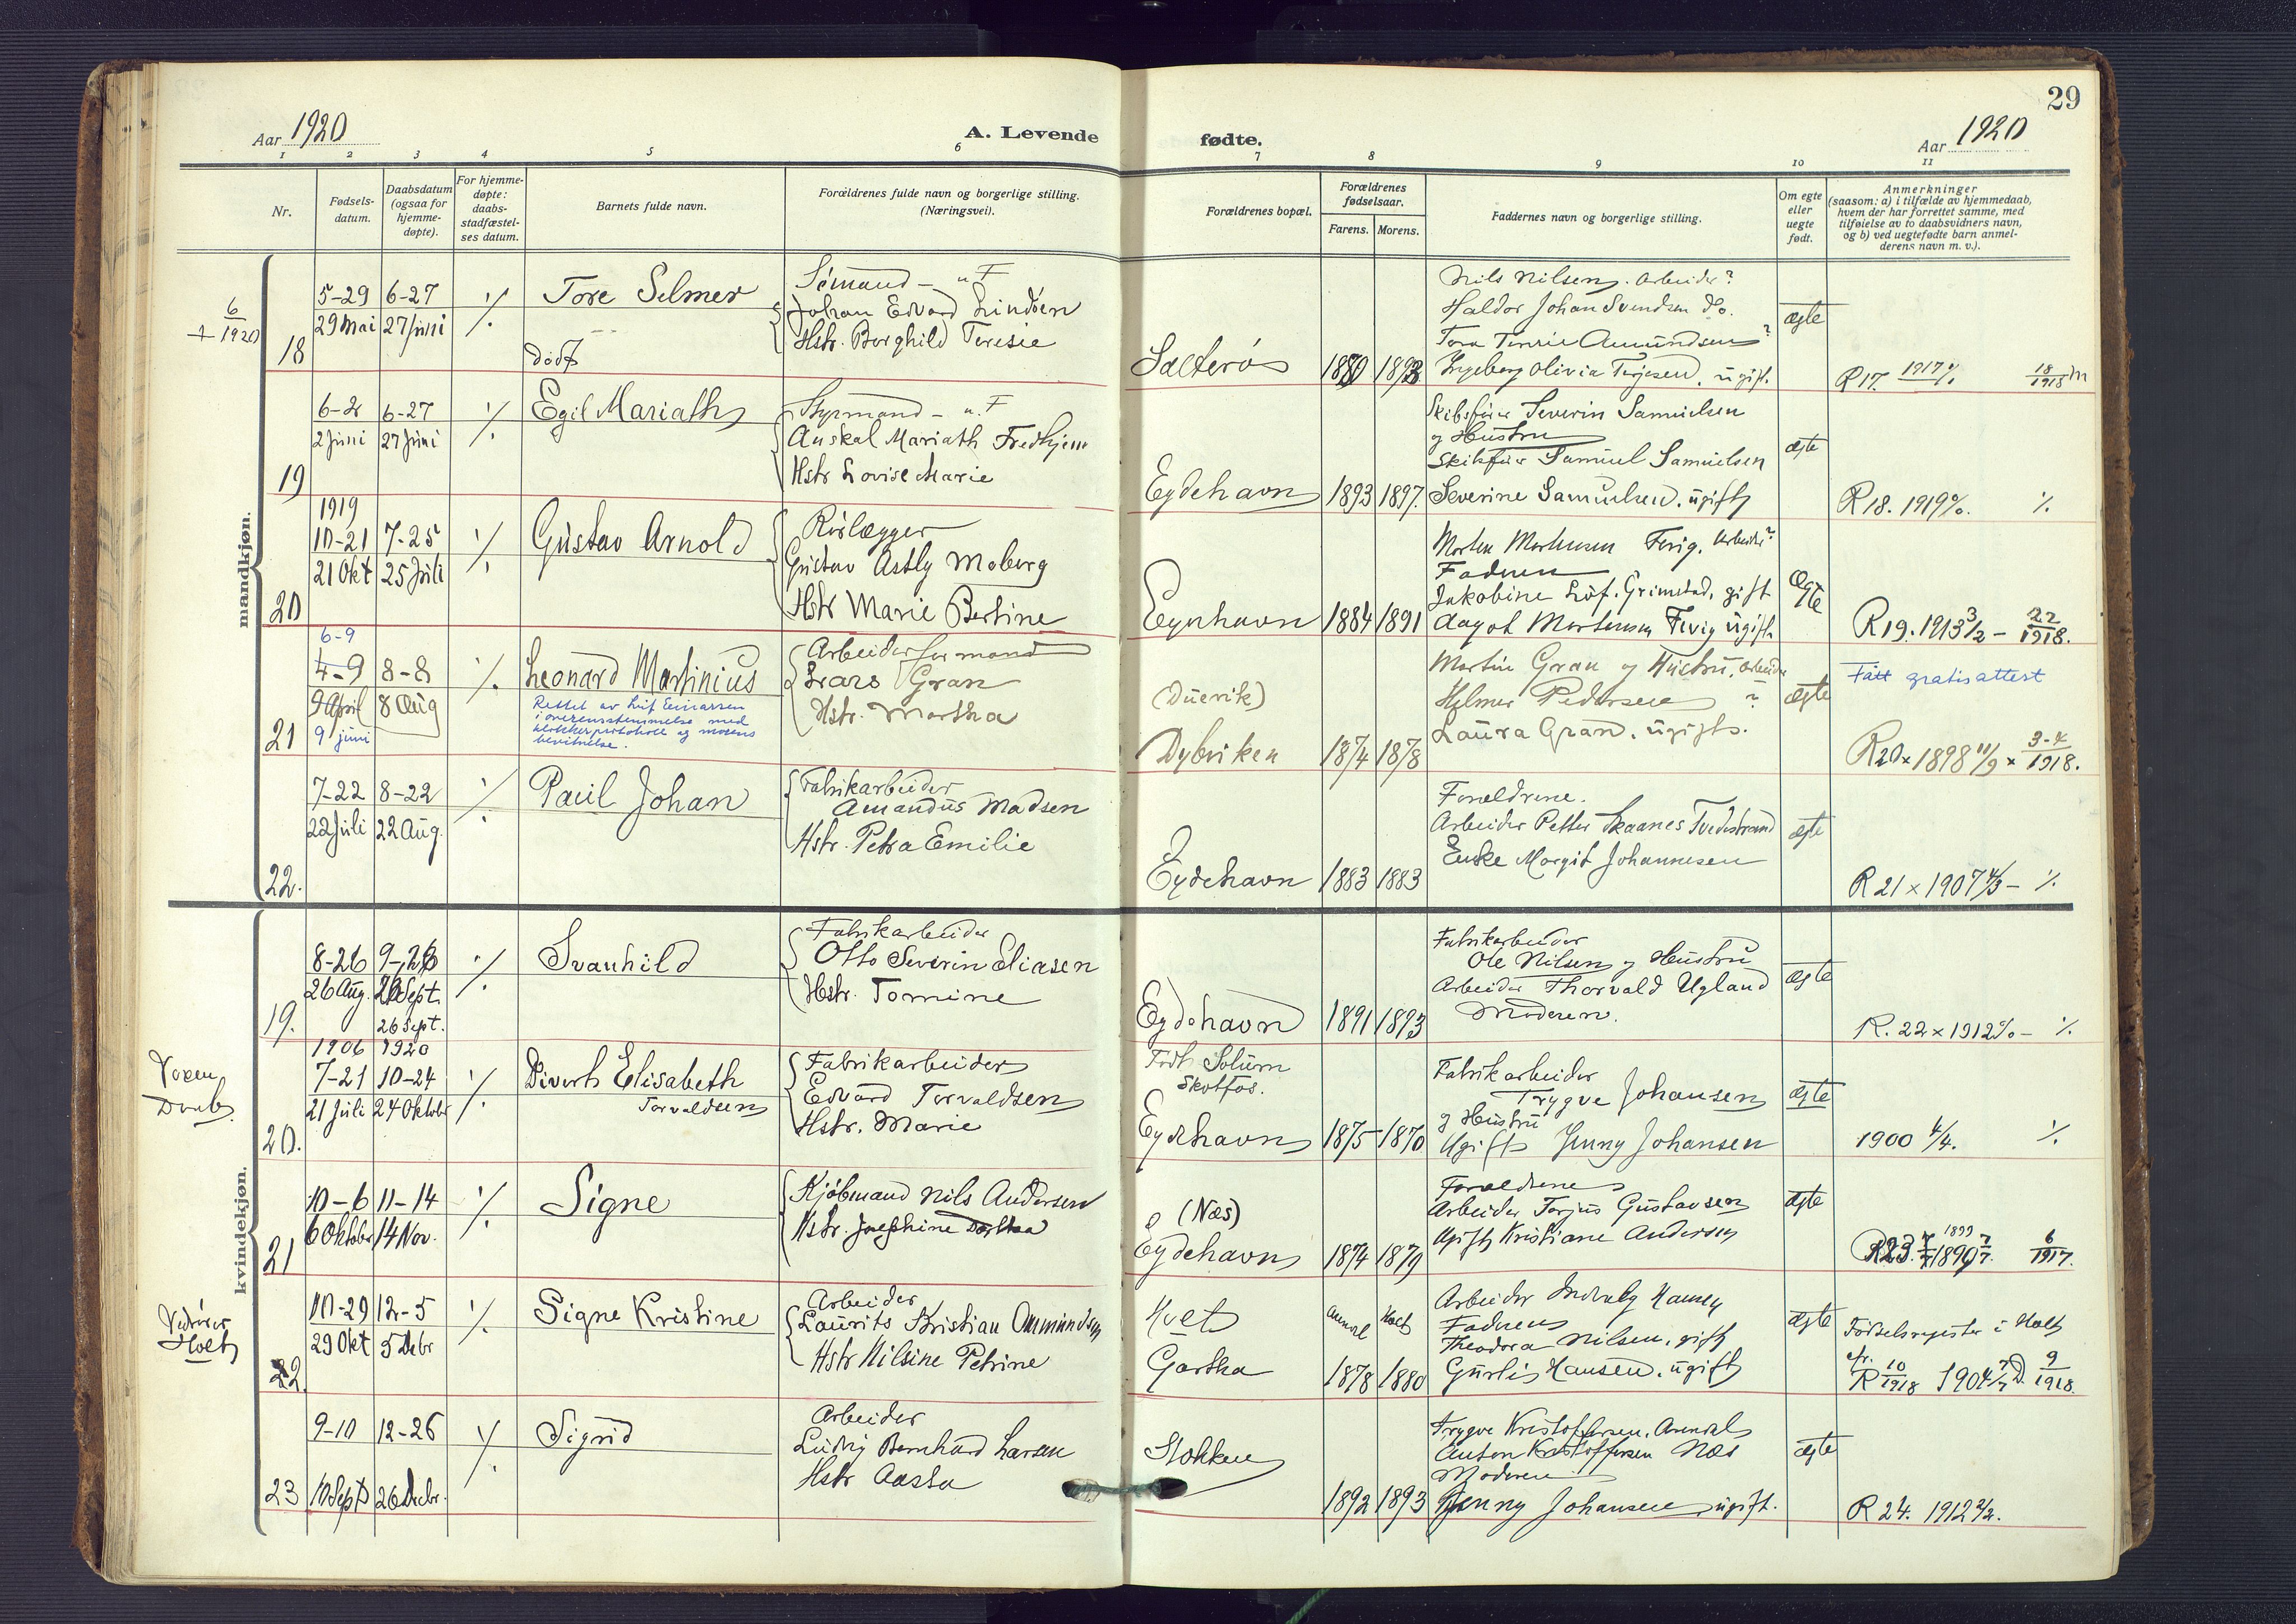 29
Aar 1920
A. Levende
fødte.
Aar 1920
1 2 3 4 5 6 7 8 9 10 11
Nr.
Fødsels-
datum.
Daabsdatum
(ogsaa for
hjemme-
døpte).
For hjemme-
døpte:
daabs-
stadfæstel-
ses datum.
Barnets fulde navn.
Forældrenes fulde navn og borgerlige stilling.
(Næringsvei).
Forældrenes bopæl.
Forældrenes
fødselsaar.
Farens. Morens.
Faddernes navn og borgerlige stilling.
Om egte
eller
uegte
født.
Anmerkninger
(saasom: a) i tilfælde av hjemmedaab,
hvem der har forrettet samme, med
tilføielse av to daabsvidners navn,
og b) ved uegtefødte barn anmel-
derens navn m. v.).
mandkjøn.
6
+ 1920
18
5-29 6-27
29 Mai 27 Juni
Tore Selmer
død
Sømand - u. F
Johan Edvard Lindøen
Hstr. Borghild Teresie
Salterø
1880 1893
Nils Nilsen. Arbeider?
Haldor Johan Svendsen do.
Tora Amundsen ?
Ingeborg Olivia Terjesen, ugift.
ægte
R 17. 1917 18/1918
19
6-2 6-27
2 Juni 27 Juni
Egil Mariath
Styrmand - u. F
Anskal Mariath Fredhjem
Hstr Lovise Marie
Eydehavn
1893 1897.
Skibsfører Severin Samuelsen
og Hustru
Skibsfører Samuel Samuelsen
Severine Samuelsen. ugift
ægte
R 18. 1919 %.
20
1919
10-21 7-25
21 Okt 25 Juli
Gustav Arnold
Rørlægger
Gustav Astly Moberg
Hstr Marie Bertine
Eydehavn
1884 1891
Morten Mortensen Fevig. Arbeider?
Faderen
Jakobine Løf. Grimstad, gift
Dagot Mortensen Fevig ugift
Ægte
R 19. 1913 3/2 - 22/1918.
21
6-9
4-9 8-8
9 April 8 Aug
9 juni
Leonard Martinius
Rettet av Leif Einarsen
i overensstemmelse med
klokkerprotokoll og morens
bevitnelse.
Arbeiderformand
Lars Gran
Hstr. Martha
(Duevik)
Dybviken
1874 1878
Martin Gran og Hustru, Arbeider
Helmer Pedersen ?
Laura Gran, ugift.
ægte
Fått gratisattest
R 20 x 1898 11/9 x 3-4/1918.
22.
7-22 8-22
22 Juli 22 Aug.
Paul Johan
Fabrikarbeider
Amandus Madsen
Hstr. Petra Emilie
Eydehavn
1883 1883
Forældrene.
Arbeider Petter Skaanes Tvedestrand
Enke Margit Johannesen
ægte
R 21 x 1907 4/3 - %
kvindekjøn.
19.
8-26 9-26
26 Aug. 26 Sept.
26 Sept.
Svanhild
Fabrikarbeider
Otto Severin Eliasen
Hstr. Tomine
Eydehavn
1891 1893
Fabrikarbeider
Ole Nilsen og Hustru
Arbeider Thorvald Ugland
Moderen.
ægte
R. 22 x 1912 % - %
Voxen
Daab
20.
1906 1920
7-21 10-24
21 Juli 24 Oktober
Diverth Elisabeth
Torvaldsen
Fabrikarbeider
Edvard Torvaldsen
Hstr. Marie
Født Solum
Skotfos.
Eydehavn
1875 1870
Fabrikarbeider
Trygve Johansen
og Hustru
Ugift Jenny Johansen
ægte
1900 4/4. %
21
10-6 11-14
6 Oktober 14 Nov.
Signe
Kjøbmand Nils Andersen
Hstr. Josephine Dorthea
(Næs)
Eydehavn
1874 1879
Forældrene
Arbeider Terjus Gustavsen
Ugift Kristiane Andersen
ægte
1899
R 23. 7/7 1899 7/7. 6/1917.
Vedrører
Holt
22.
10-29 12-5
29 Okt 5 Debr
Signe Kristine
Arbeider
Laurits Kristian Ommundsen
Hstr Nilsine Petrine
Holt
Gartha
Arendal Holt
1878 1880
Arbeider Hansen
Faderen
Theodora Nilsen, gift
Gurli Hansen, ugift
ægte
Fødselsregister i Holt
cfr. R 10/1918 1904 9/1918.
23
9-10 12-26
10 Sept 26 Decbr.
Sigrid
Arbeider
Ludvig Bernhard Larsen
Hstr Aasta
Stokken
1892 1893
Trygve Kristoffersen, Arendal
Anton Kristoffersen Næs
Moderen
Jenny Johansen, ugift.
ægte
R 24. 1912 2/2.